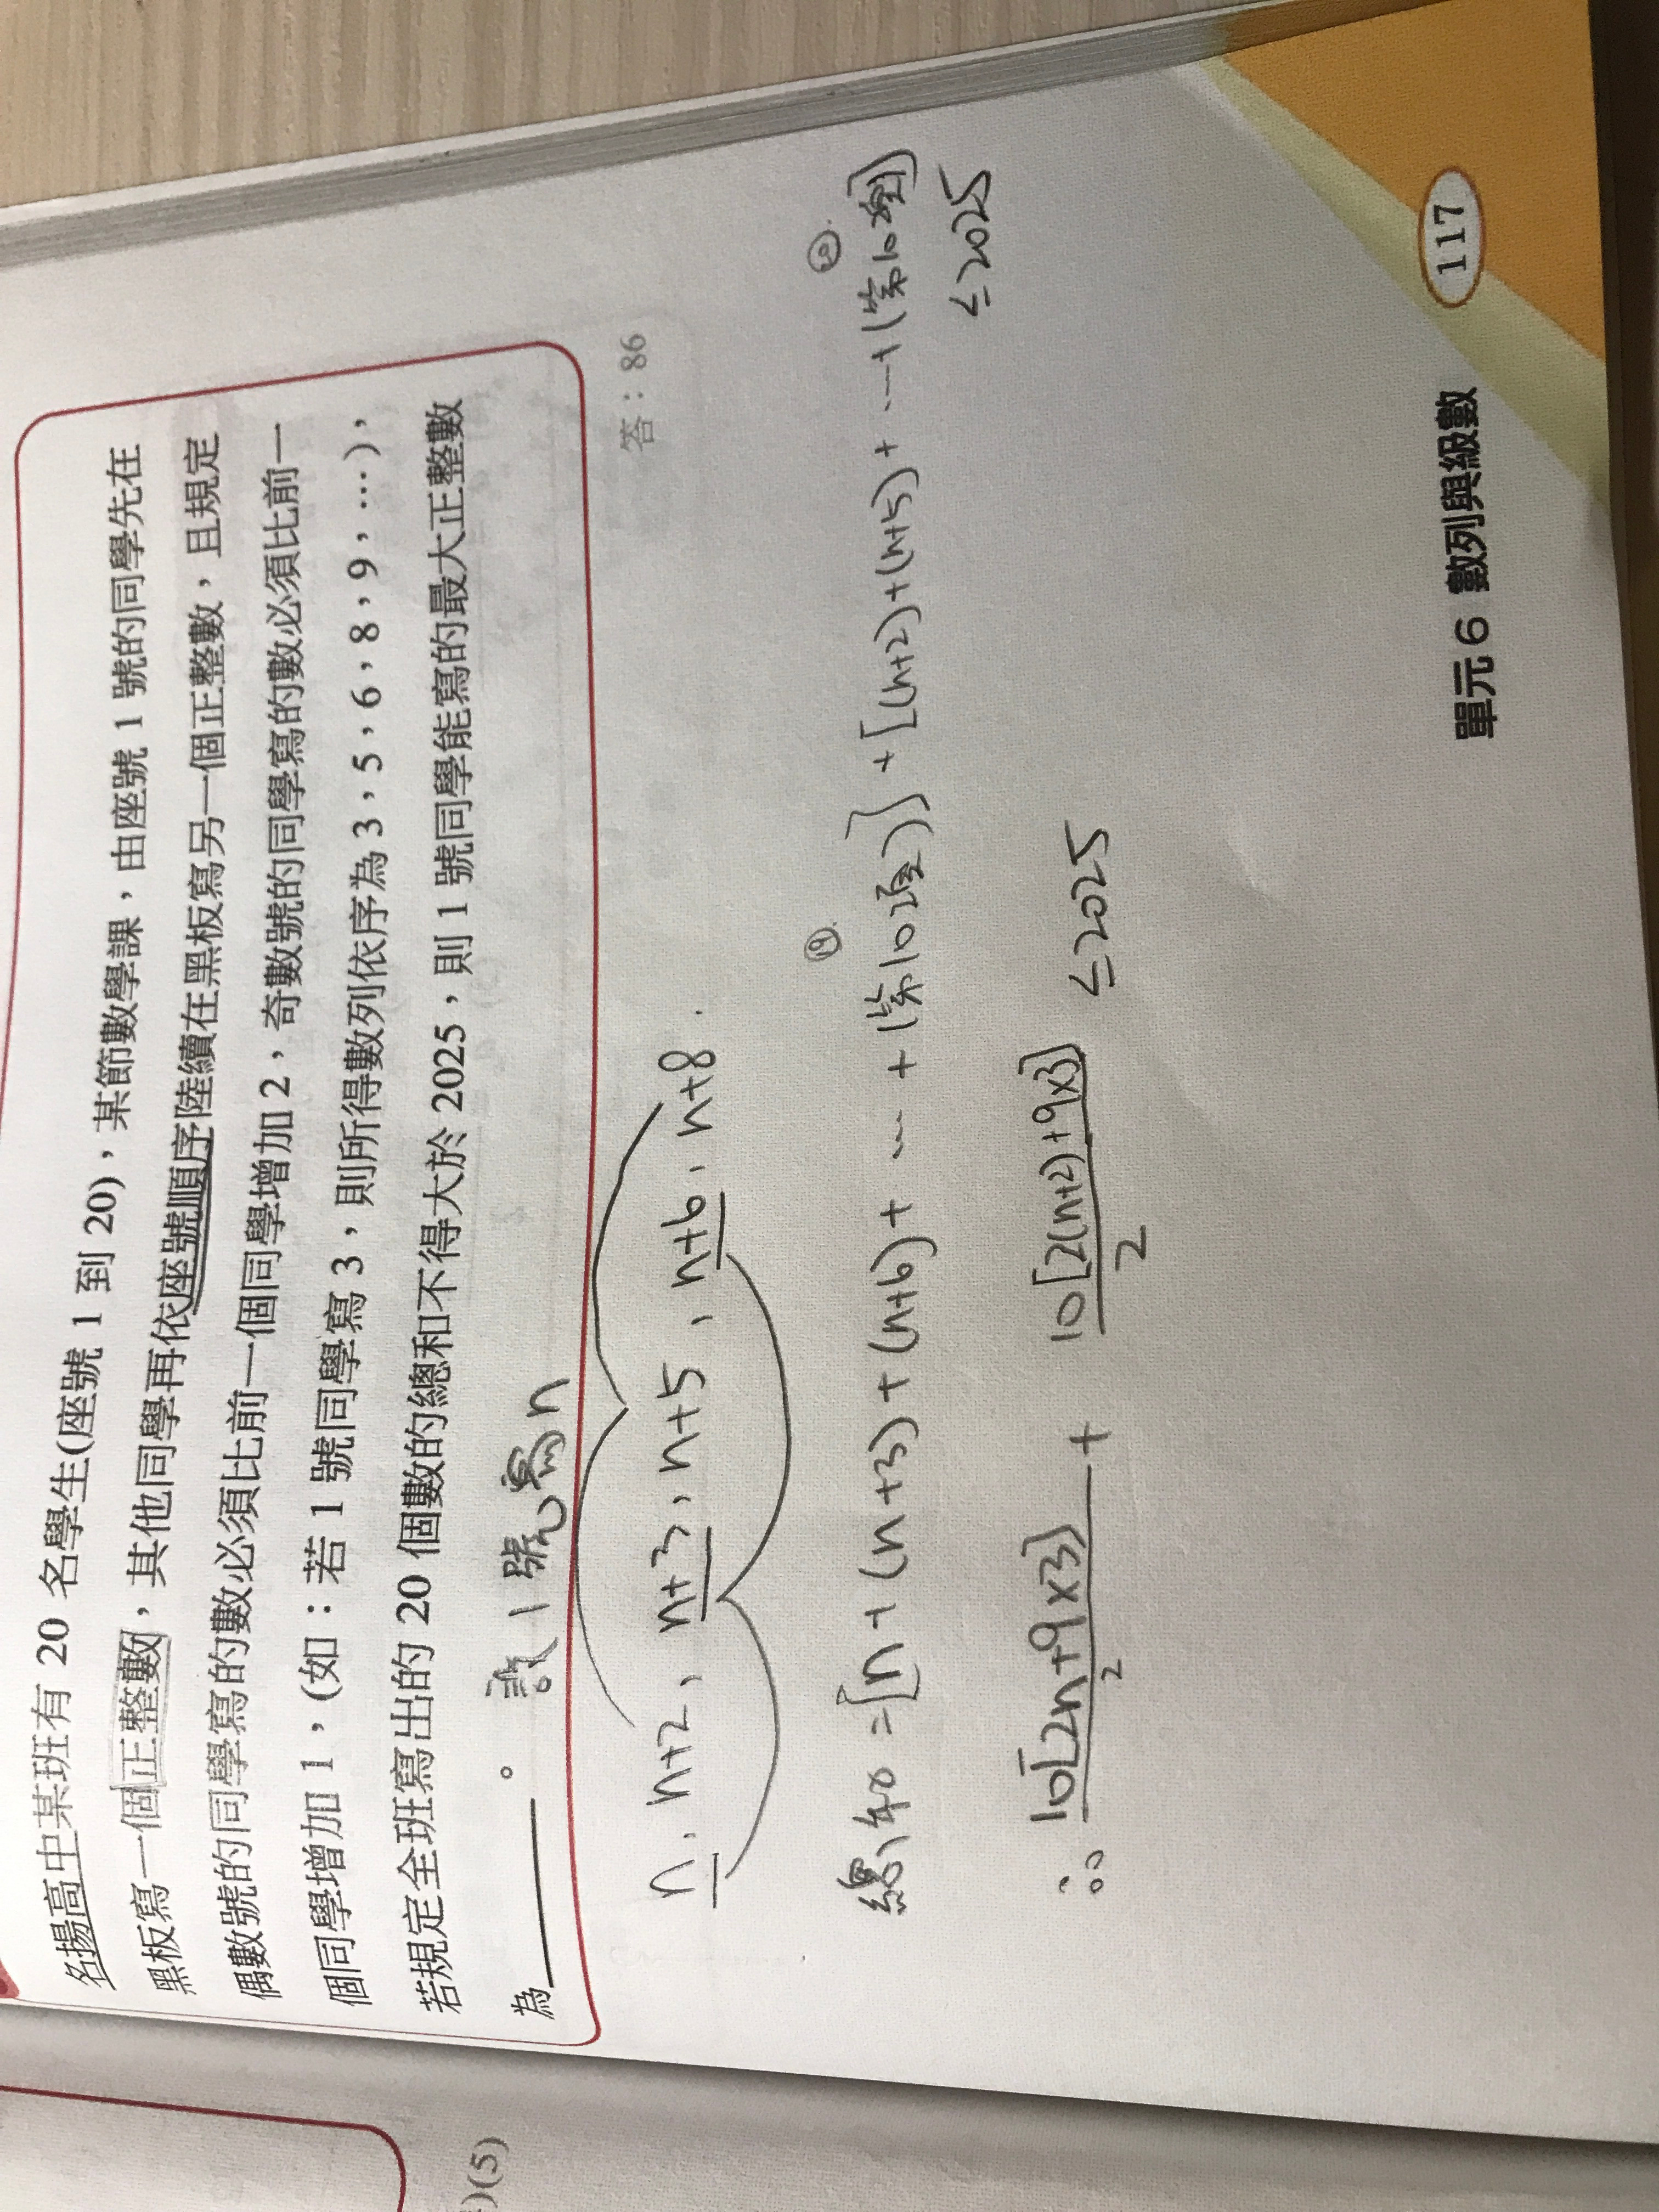 名揚高中某班有 20 名學生(座號 1 到 20)，某節數學課，由座號 1 號的同學先在
黑板寫一個正整數，其他同學再依座號順序陸續在黑板寫另一個正整數，且規定
偶數號的同學寫的數必須比前一個同學增加 2，奇數號的同學寫的數必須比前一
個同學增加 1，(如：若 1 號同學寫 3，則所得數列依序為 3，5，6，8，9，…)，
若規定全班寫出的 20 個數的總和不得大於 2025，則 1 號同學能寫的最大正整數
為______。
設 1 號寫 n
答：86
n、n+2、n+3、n+5、n+6、n+8.
⑲ ⑳
總和=[n+(n+3)+(n+6)+…+(第10項)]+[(n+2)+(n+5)+…+(第10項)]
≤2025
∴ 10[2n+9×3]/2 + 10[2(n+2)+9×3]/2 ≤2025
單元 6 數列與級數
117
)(5)